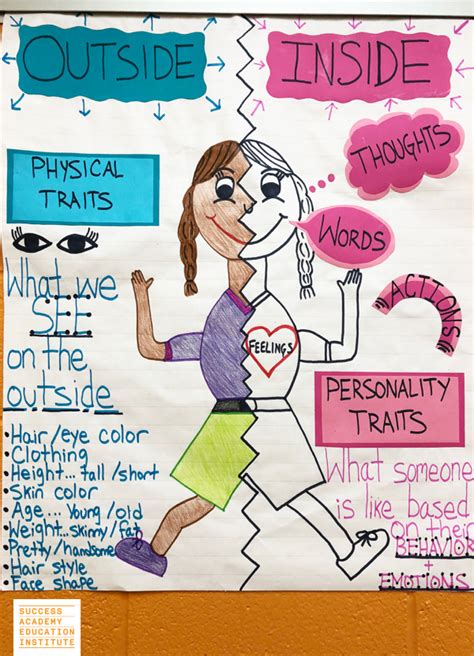 OUTSIDE
INSIDE
PHYSICAL
TRAITS
What we
SEE
on the
outside
• Hair/eye color
• Clothing
• Height... tall/short
• Skin color
• Age... Young/old
• Weight...skinny/fat
• Pretty/handsome
• Hair style
• Face shape
THOUGHTS
WORDS
ACTIONS
FEELINGS
PERSONALITY
TRAITS
What someone
is like based
on their
BEHAVIOR
+
EMOTIONS
SUCCESS
ACADEMY
EDUCATION
INSTITUTE